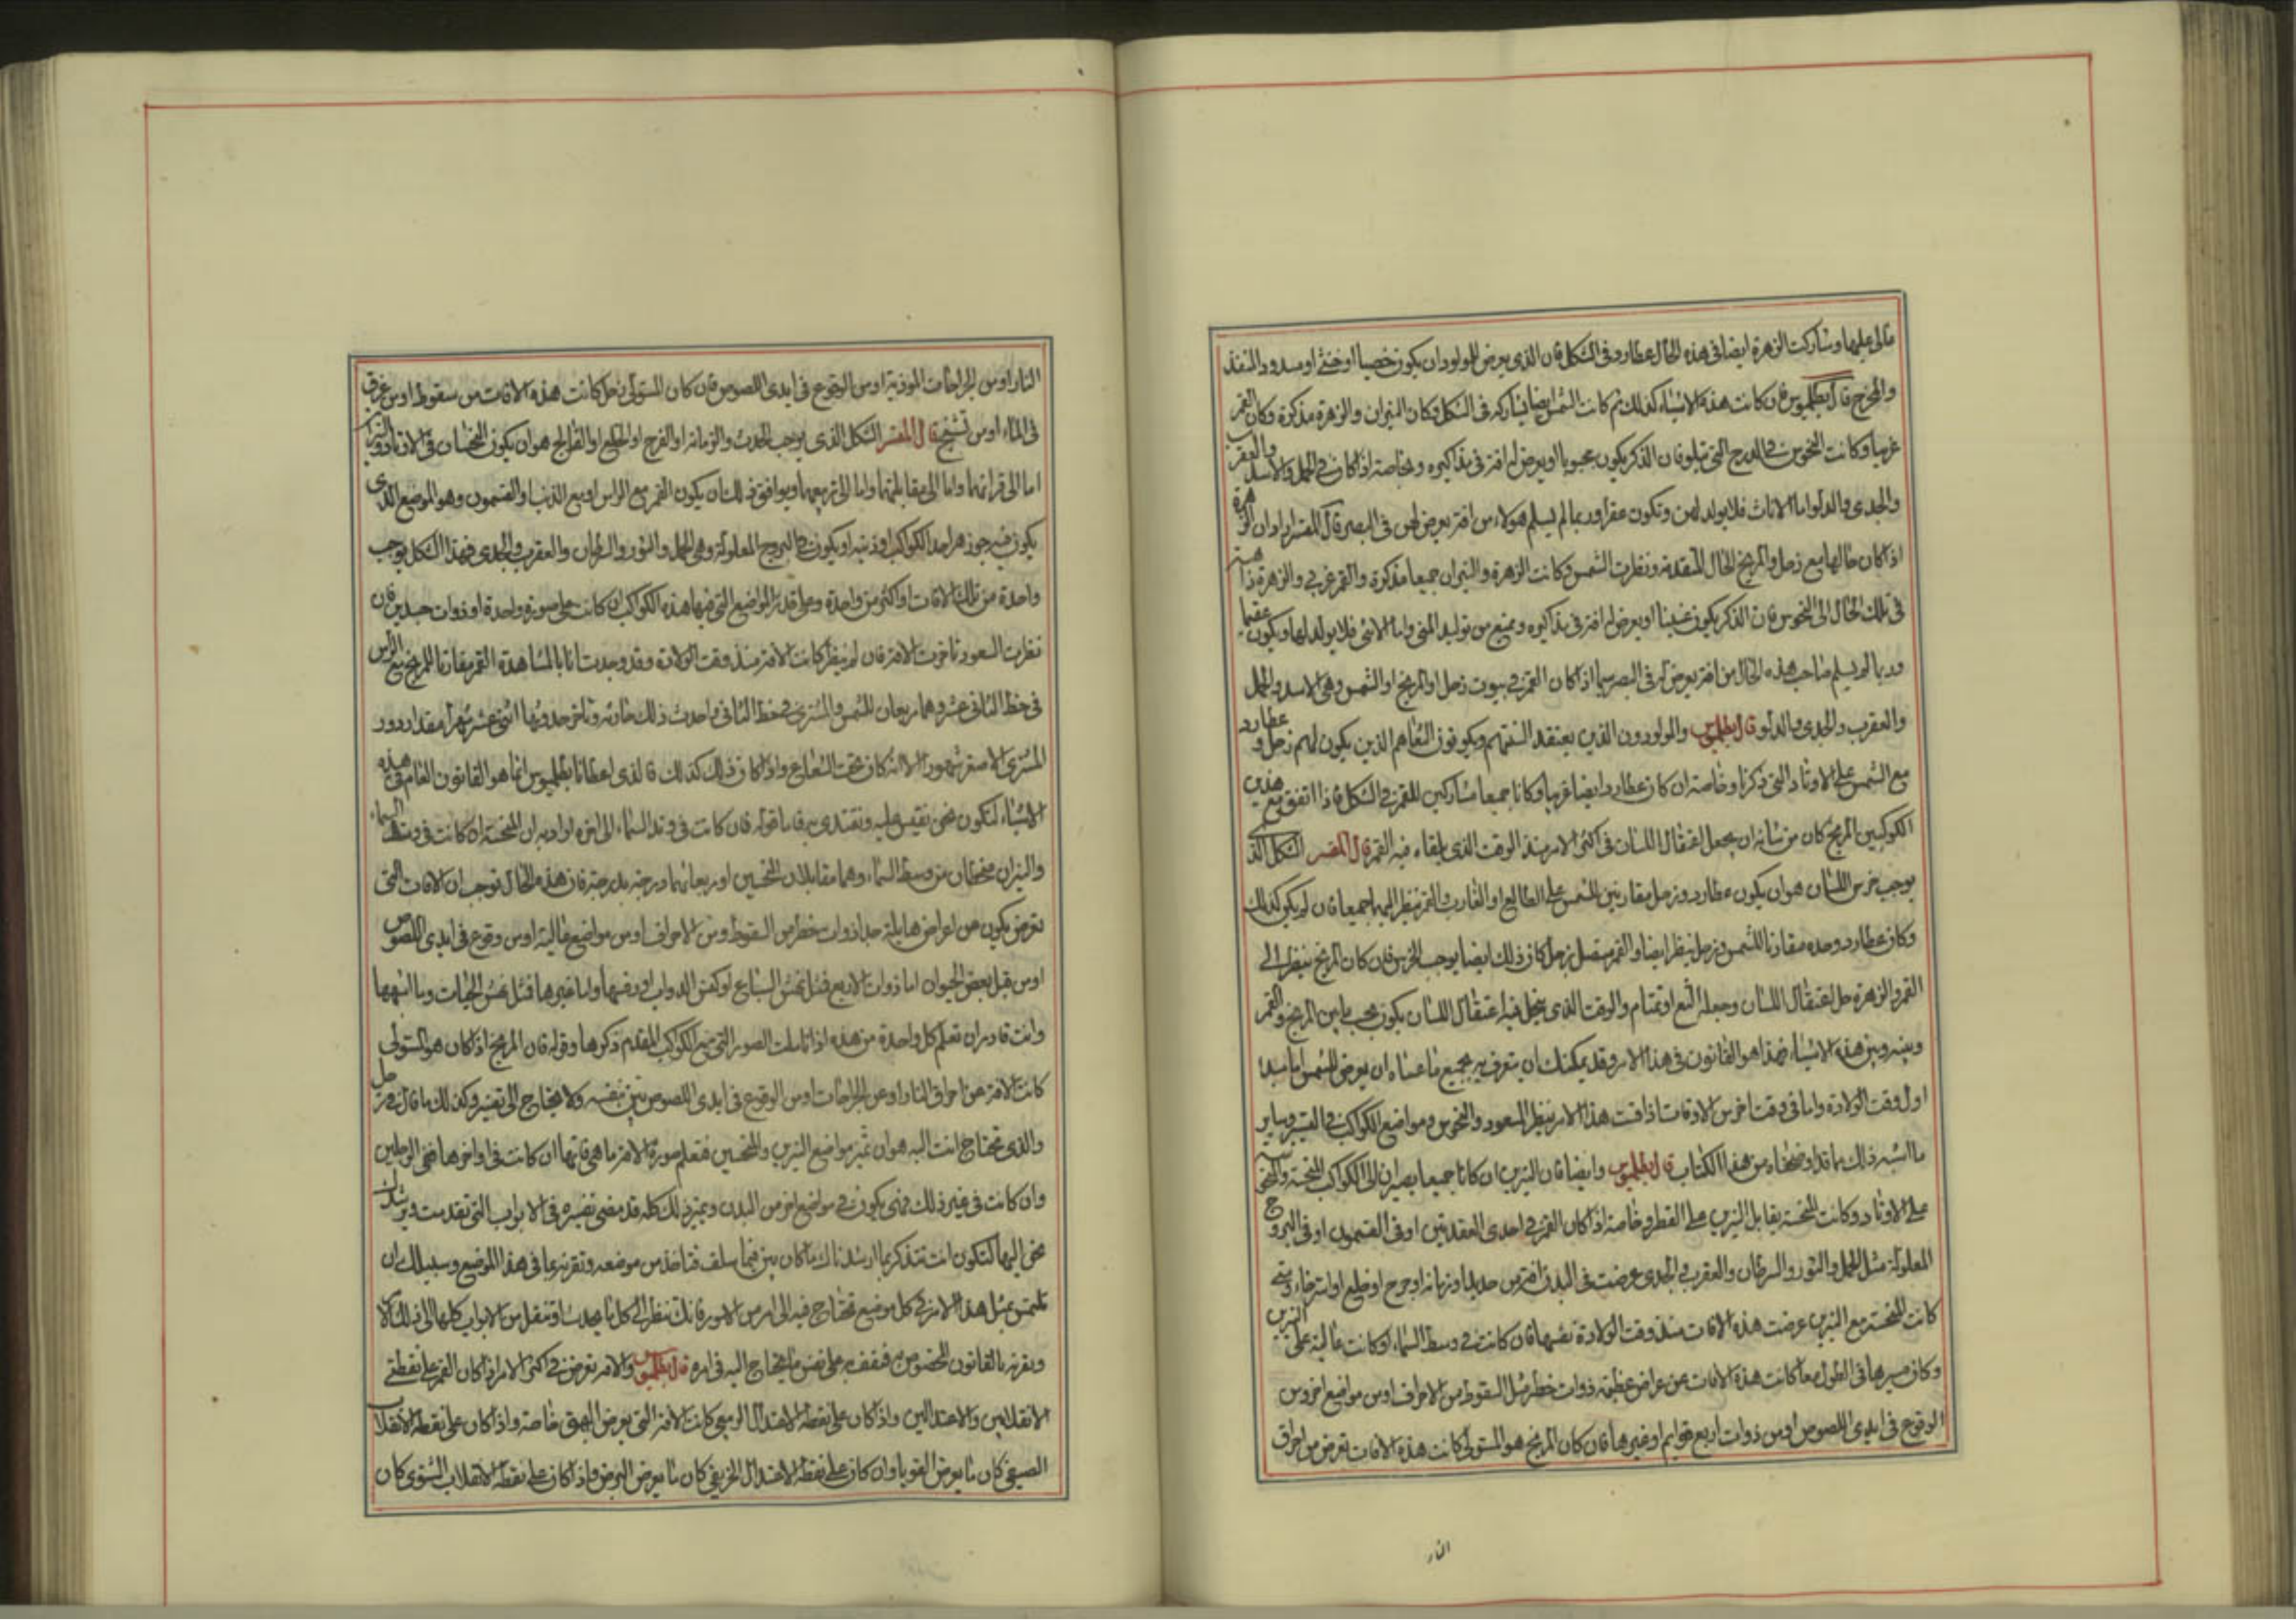 مالى عليهما وشاركت الزهرة ايضا فى هذه الحال عطارد فى الشكل فان الذى يعرض للمولود ان يكون خصيا او خنثى او مسدود المنفذ
والمخرج قال بطلميوس فان كانت هذه الاشياء كذلك ثم كانت الشمس ايضا مشاركة فى الشكل وكان النيران والزهرة مذكرة وكان القمر
غربيا وكانت النحوس فى الدرج التى تتلو فان الذكر يكون مجبوبا او يعرض له افة فى مذاكيره وبخاصة اذا كان فى الحمل والاسد والعقرب
والجدى والدلو واما الاناث فلا يولد لهن وتكون عقرا وربما لم يسلم هولاء من افة يعرض لهن فى البصر قال المفسر اراد ان الزهرة
اذا كان حالها مع زحل والمريخ الحال المتقدمة ونظرت الشمس وكانت الزهرة والنيران جميعا مذكرة والقمر غربى والزهرة ذاهبة
فى تلك الحال الى النحوس فان الذكر يكون عنينا او يعرض له افة فى مذاكيره ويمتنع من توليد المنى واما الانثى فلا يولد لها ويكون عقيما
وربما لم يسلم صاحب هذه الحال من افة يعرض له فى البصر سيما اذا كان القمر فى بيوت زحل او المريخ او الشمس وهى الاسد والحمل
والعقرب والجدى والدلو قال بطلميوس والمولودون الذين يعتقد السنتهم ويكونون الثغاهم الذين يكون لهم زحل وعطارد
مع الشمس على الاوتاد التى ذكرنا وخاصة ان كان عطارد ايضا غربيا وكانا جميعا مشاركين للقمر فى الشكل فاذا اتفق مع هذين
الكوكبين المريخ كان من شانه ان يحل اعتقال اللسان فى اكثر الامر منذ الوقت الذى يلقاه فيه القمر قال المفسر الشكل الذى
يوجب خرس اللسان هو ان يكون عطارد وزحل مقارنين للشمس على الطالع او الغارب والقمر ينظر اليهما جميعا فان لم يكن كذلك
وكان عطارد وحده مقارنا للشمس وزحل ينظر ايضا والقمر متصل بزحل كان ذلك ايضا يوجب الخرس فان كان المريخ ينظر الى
القمر والزهرة حل اعتقال اللسان وجعله الثغ او تمتام والوقت الذى ينحل فيه اعتقال اللسان يكون بحسب ما بين المريخ والقمر
وبينه وبين هذه الاشياء فهذا هو القانون فى هذا الامر وقد يمكنك ان يتعرف به جميع ما عساه ان يعرض للشمس اما منذ
اول وقت الولادة واما فى وقت اخر من الاوقات اذا قست هذا الامر بنظر السعود والنحوس ومواضع الكواكب فى التسيير وساير
ما اشبه ذلك مما قد اوضحناه من هذا الكتاب قال بطلميوس وايضا فان النيرين ان كانا جميعا يصيران الى الكواكب المنحسة والتى هى
على الاوتاد وكانت المنحسة يقابل النيرين على القطر وخاصة اذا كان القمر فى احدى العقدتين او فى القتمون او فى البروج
المعلولة مثل الحمل والثور والسرطان والعقرب والجدى عرضت فى البدن افة من حدبا وزمانة او جرح او خلع او استرخاء ومتى
كانت المنحسة مع النيرين عرضت هذه الافات منذ وقت الولادة نفسها فان كانت فى وسط السماء او كانت عالية على النيرين
وكان مسيرها فى الطول معا كانت هذه الافات عن عراض عظيمة ذوات خطر مثل السقوط من الاجراف او من مواضع اخر ومن
الوقوع فى ايدى اللصوص او من ذوات اربع قوايم او غيرها فان كان المريخ هو المستولى كانت هذه الافات تعرض من احراق
النار
النار او من الجراحات الموذية او من الوقوع فى ايدى اللصوص فان كان المستولى زحل كانت هذه الافات من سقوط او من غرق
فى الماء او من تشنج قال المفسر الشكل الذى يوجب الحدث والزمانة او القرح او الخلع او الفالج هو ان يكون النحسان فى الاوتاد والنيران
اما الى قرانهما واما الى مقابلتهما واما الى تربيعهما ويوافق ذلك ان يكون القمر مع الراس او مع الذنب او القتمون وهو الموضع الذى
يكون فيه جوزهر احد الكواكب او ذنبه او يكون فى البروج المعلولة وهى الحمل والثور والسرطان والعقرب والجدى فهذا الشكل يوجب
واحدة من تلك الافات او اكثر من واحدة وعلى قدر المواضع التى فيها هذه الكواكب ان كانت على صورة واحدة او ذوات جسدين فان
نظرت السعود تاخرت الافة فان لم ينظر كانت الافة منذ وقت الولادة وقد وجدت انا بالمشاهدة القمر مقارنا للمريخ مع الراس
فى حظ الثانى عشر وهما يربعان للشمس والمشترى فى حظ الثانى فاحدث ذلك حادثة وتاخر حدوثها اثنى عشر شهرا مقدار دور
المشترى الاصغر شهورا الا انه كان تحت الشعاع واذا كان ذلك كذلك فالذى اعطانا بطلميوس انما هو القانون العام فى هذه
الاشياء لنكون نحن نقيس عليه ونقتدى به فاما قوله فان كانت فى وتد السماء الى اخره اراد به ان المنحسة ان كانت فى وسط السماء
والنيران منحطان من وسط السماء وهما مقابلان للنحسين او يربعانهما درجة بدرجة فان هذه الحال توجب ان الافات التى
تعرض يكون من اعراض هايلة جدا ذوات خطر من السقوط ومن الاجراف او من مواضع عالية او من وقوع فى ايدى اللصوص
او من قبل بعض الحيوان اما ذوات الاربع فمثل نهش السباع او كض الدواب او رفسها واما غيرها فمثل نهش الحيات وما اشبهها
وانت قادر ان تعلم كل واحدة من هذه اذا تاملت الصور التى فيها الكواكب المتقدم ذكرها وقوله فان المريخ اذا كان هو المستولى
كانت الافة من احراق النار او عن الجراحات او من الوقوع فى ايدى اللصوص بين بنفسه ولا يحتاج الى تفسير وكذلك ما قال فى زحل
والذى تحتاج انت اليه هو ان تميز مواضع النيرين والنحسين فتعلم صورة الافة ما هى فانها ان كانت فى اواخرها فهى الرجلين
وان كانت فى غير ذلك فهى يكون فى مواضع اخر من البدن وتمييز ذلك كله قد مضى تفسيره فى الابواب التى تقدمت ويرشدك
نحن اليها لتكون انت تتذكر بما ارشدناك ما كان بين فيما سلف فتاخذ من موضعه وتقرنه بما فى هذا الموضع وسبيلك ان
تلتمس مثل هذا الامر فى كل موضع تحتاج فيه الى امر من الامور فانك تنظر الى كل ما يحدث او تنقل من الابواب كلها الى ذلك
وتقرنه بالقانون المخصوص به فتقف به على نفس ما يحتاج اليه فى امره قال بطلميوس والافة تعرض فى اكثر الامر اذا كان القمر على نقطتى
الانقلابين والاعتدالين واذا كان على نقطة الاعتدال الربيعى كانت الافة التى يعرض البهق خاصة واذا كان على نقطة الانقلاب
الصيفى كان ما يعرض القوبا وان كان على نقطة الاعتدال الخريفى كان ما يعرض البرص واذا كان على نقطة الانقلاب الشتوى كان